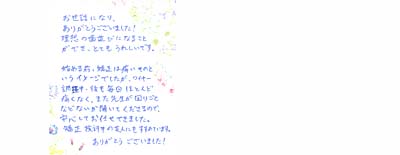 お世話になり、
ありがとうございました!
理想の歯並びになること
ができ、とても うれしいです。
始める前、矯正は痛いもの
というイメージでしたが、ワイヤー
調整中・後も毎回 ほとんど
痛くなく、また先生が困りごと
などないか 聞いてくださるので、
安心してお任せできました。
矯正 検討中の友人にもすすめています。
ありがとう ございました!